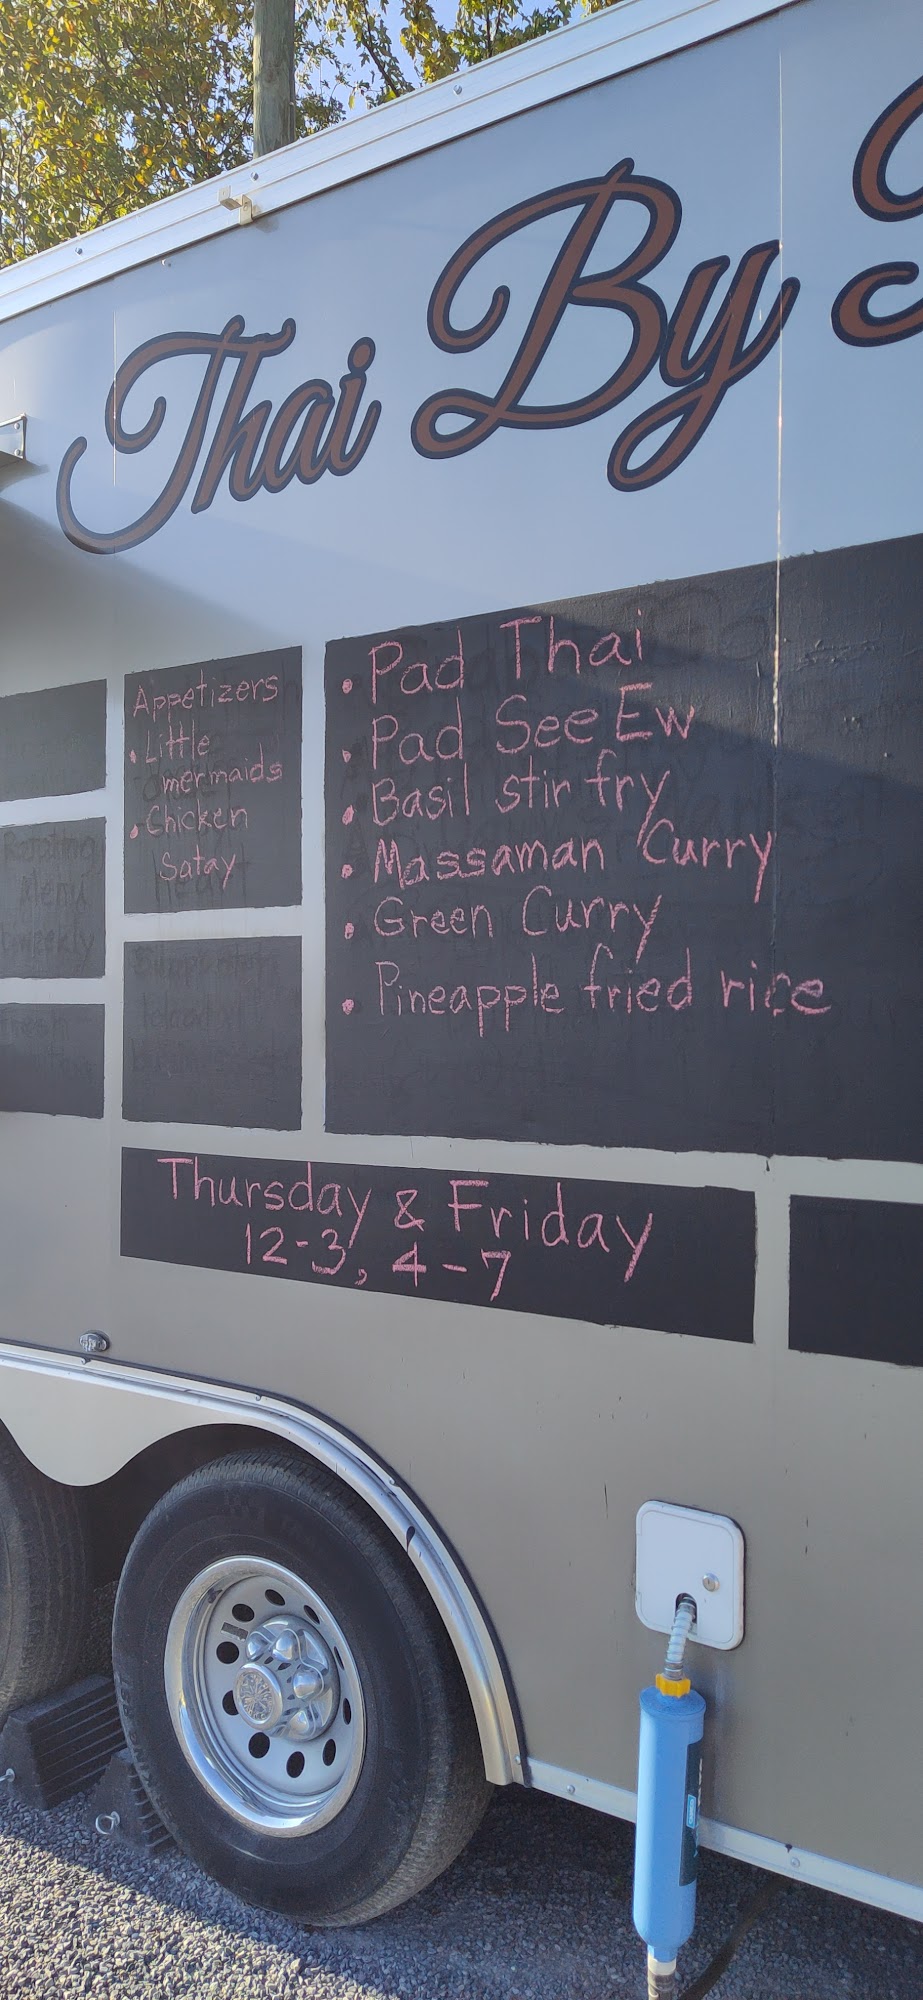 Thai By
Appetizers
• Little
mermaids
• Chicken
Satay
• Pad Thai
• Pad See Ew
• Basil stir fry
• Massaman Curry
• Green Curry
• Pineapple fried rice
Rotating
Menu
weekly
Thursday & Friday
12-3, 4-7